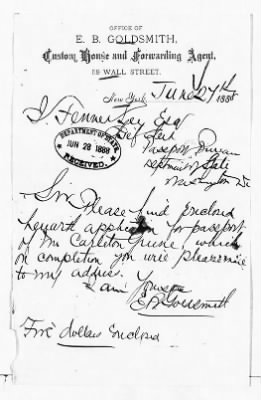 OFFICE OF
E. B. GOLDSMITH,
Custom House and Forwarding Agent,
19 WALL STREET.
New York, June 27th 1888
Esq
Passport Bureau
Department of State
Washington DC
DEPARTMENT OF STATE
JUN 28 1888
RECEIVED.
Sir Please find Enclosed
herewith application for passport
of Mr Carleton Greene, which
on completion you will please mail
to my address.
I am Yours
E B Goldsmith
Five dollars Enclosed